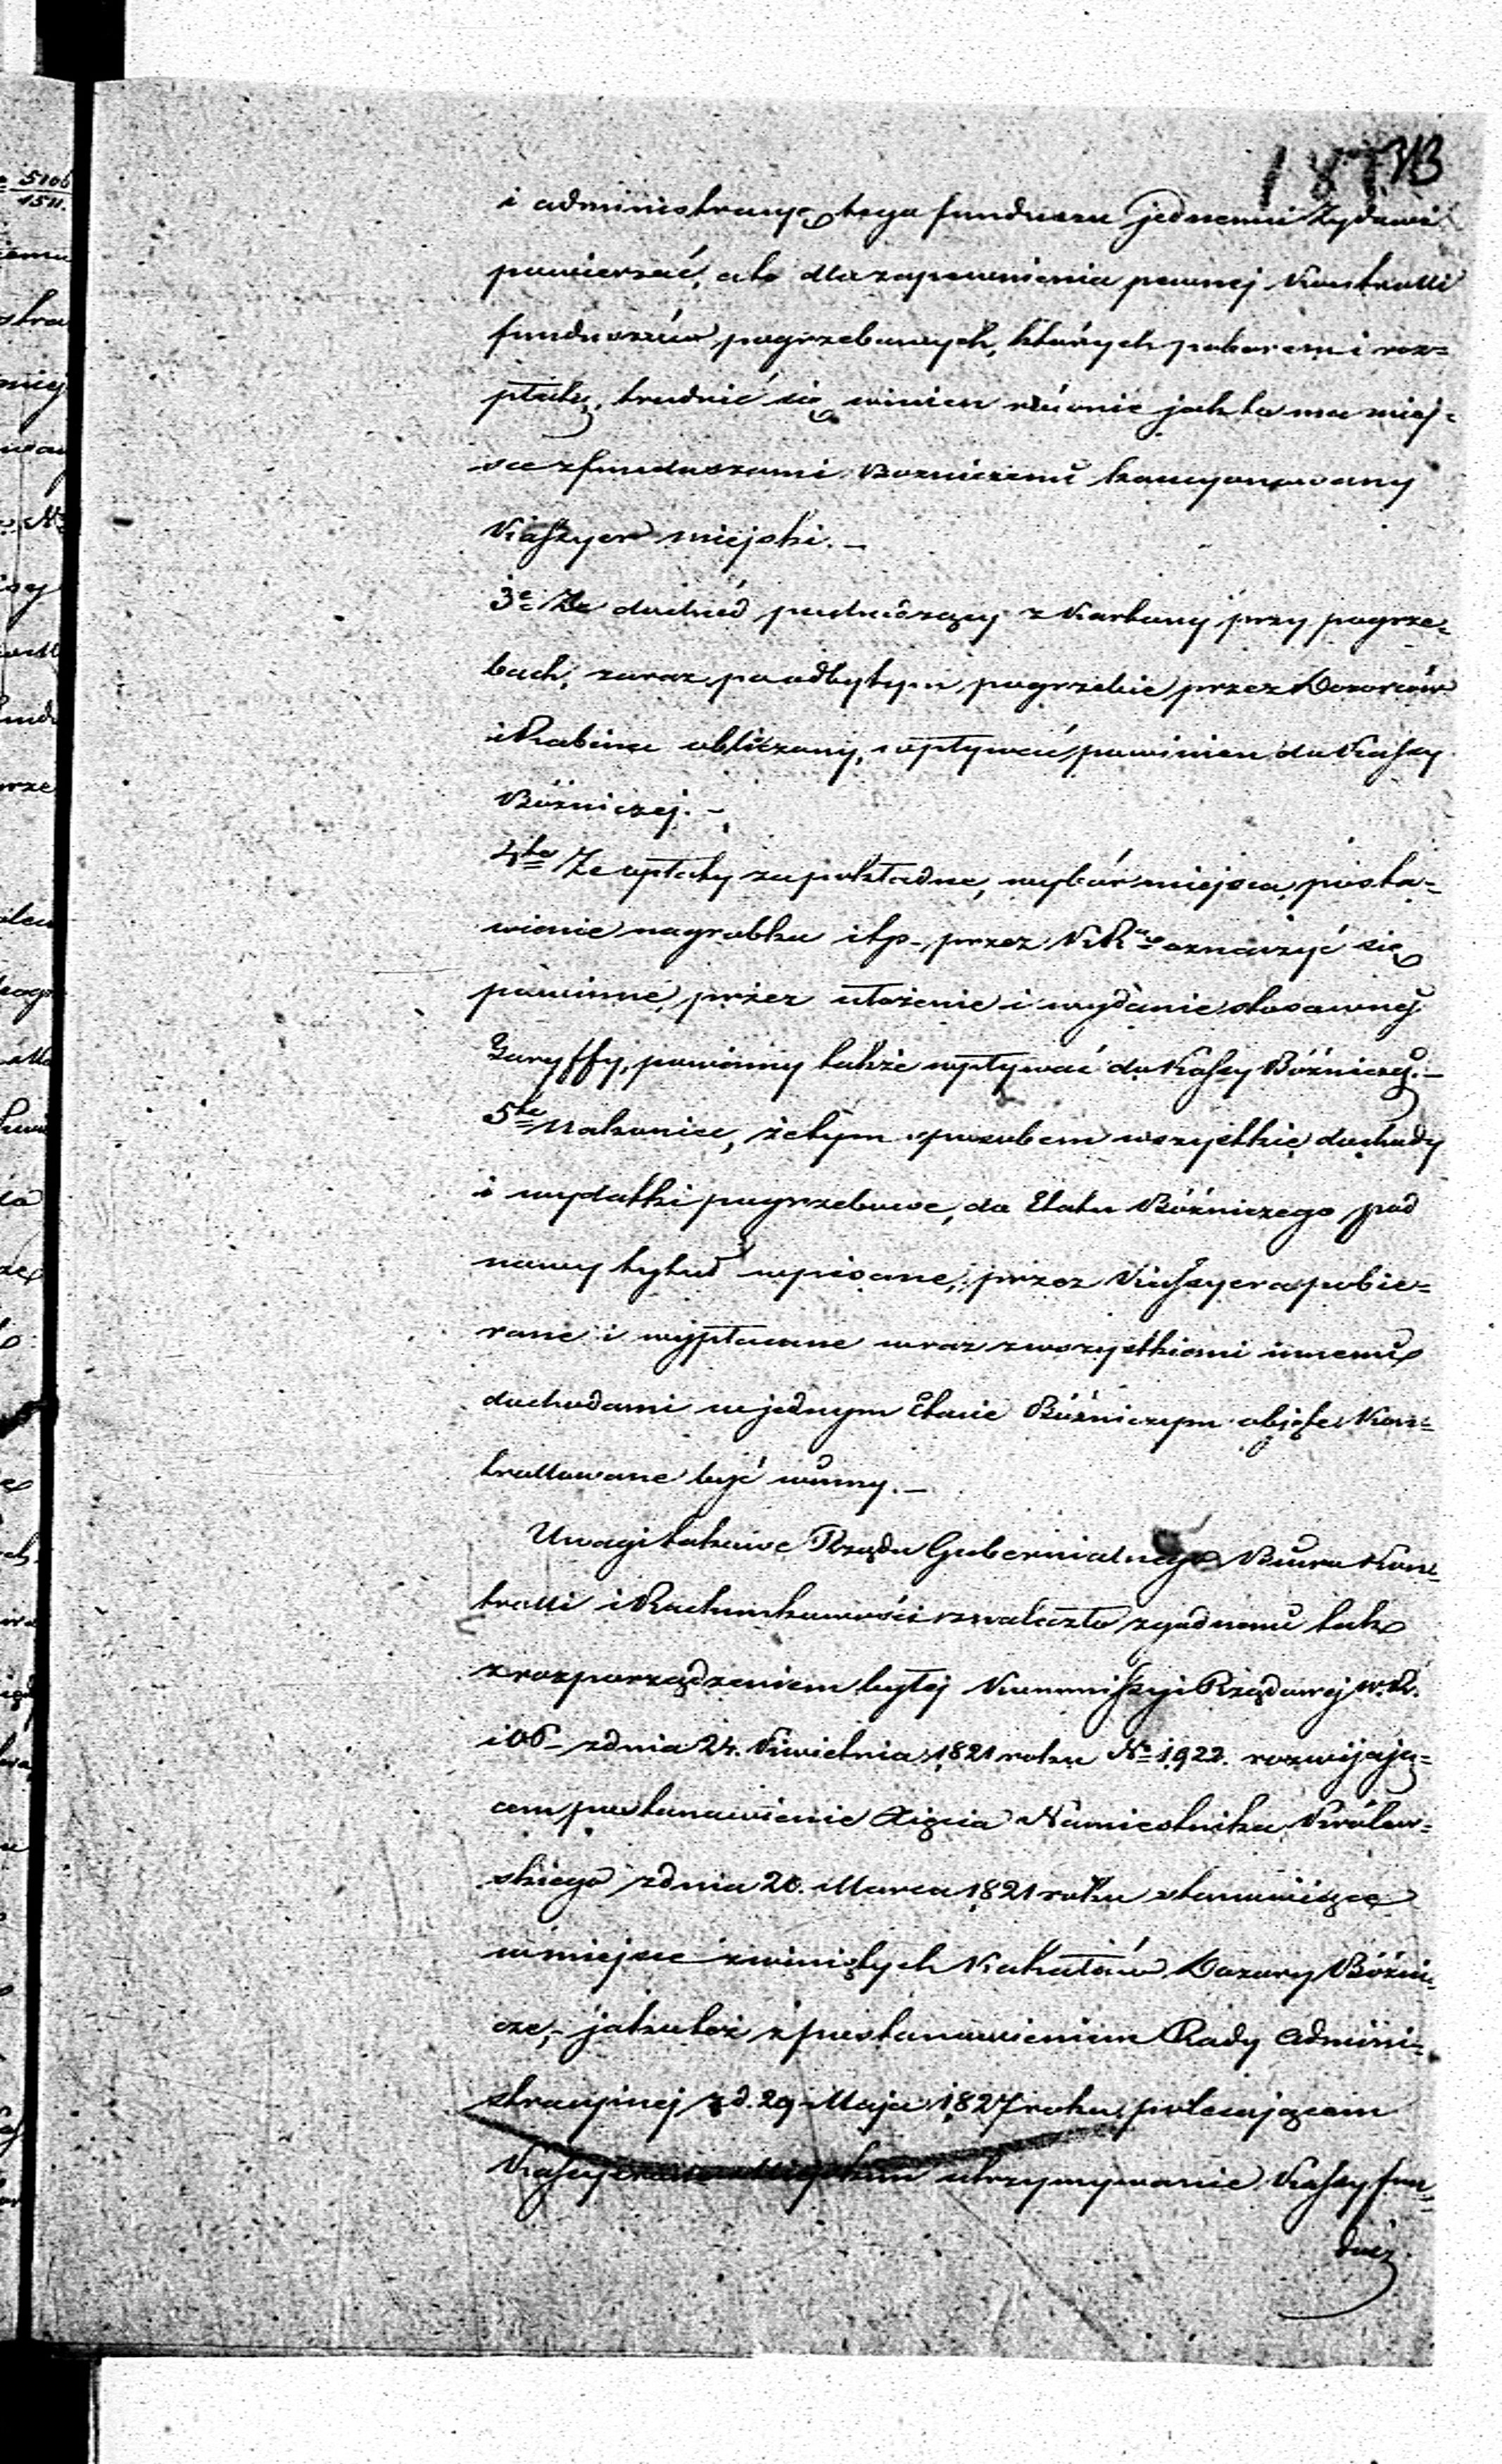 313
i administracyę tego funduszu jednemu Żydowi
powierzać, ale dla zapewnienia pewnej Kontrolli
funduszów pogrzebowych, których poborem i roz=
płatą, trudnić się winien równie jak to ma miej=
sce z funduszami Bozniczemi kaucyonowany
Kaszyer miejski. —
3e Że dochód pochodzący z Karbony przy pogrze=
bach, zaraz po odbytym pogrzebie przez Dozorców
i Rabina obliczony, wpływać powinien do Kassy
Bóżniczej. —
4te Że opłaty za pokładne, wybór miejsca, posta=
wienie nagrobku itp. przez oznaczyć się
powinne, przez ułożenie i wydanie stosownej
Taryffy, powinny także wpływać do Kassy Bóźniczej. —
5te Nakoniec, że tym sposobem wszystkie dochody
i wydatki pogrzebowe, do Etatu Bóżniczego pod
nowy tytuł wpisane, przez Kassyera pobie=
rane i wypłacane wraz z wszystkiemi innemi
dochodami w jednym Etacie Bóżniczym objęte Kon=
trollowane być winny. —
Uwagi takowe Rządu Gubernialnego Biuro Kon=
trolli i Rachunkowości znalazło zgodnemi tak
z rozporządzeniem byłej Kommissyi Rządowej W.R.
i OP. z dnia 24. Kwietnia 1821 roku No 1922. rozwijają=
cem postanowienie Xięcia Namiestnika Królew=
skiego z dnia 20. Marca 1821 roku stanowiące
w miejsce zwiniętych Kahałów Dozory Bóżni=
cze, — jako też z postanowieniem Rady Admini=
stracyinej z d. 29 Maja 1827 roku, polecającem
Kassyerom Miejskim utrzymywanie Kassy fun=
dusz
5106
1511.